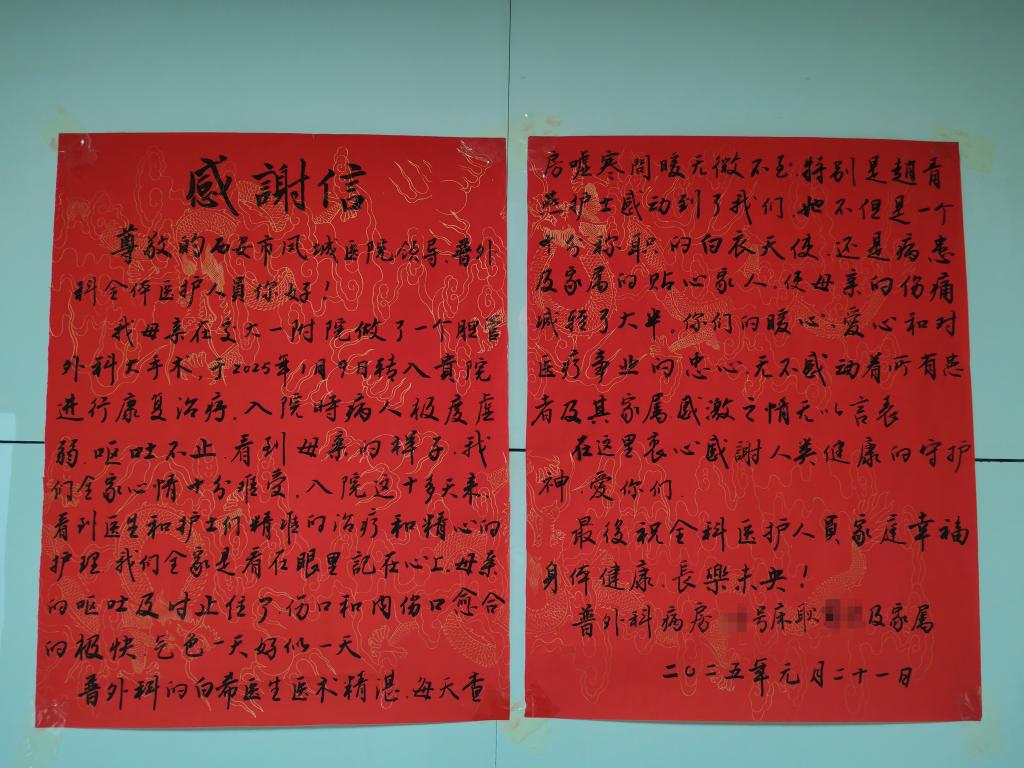 感謝信
尊敬的西安市凤城医院领导、普外
科全体医护人員你好！
我母亲在交大一附院做了一个胆管
外科大手术，于2025年1月9日转入貴院
进行康复治疗，入院時病人极度虚
弱、呕吐不止，看到母亲的样子，我
们全家心情十分难受，入院这十多天来，
看到医生和护士们精准的治疗和精心的
护理，我们全家是看在眼里記在心上，母亲
的呕吐及时止住了伤口和内伤口愈合
的极快，气色一天好似一天
普外科的白希医生医术精湛，每天查
房嘘寒問暖无微不至，特别是趙看
燕护士感动到了我们，她不但是一个
十分称职的白衣天使，还是病患
及家属的贴心家人，使母亲的伤痛
减轻了大半，你们的暖心、爱心和对
医疗事业的忠心，无不感动着所有患
者及其家属感激之情无以言表
在这里衷心感謝人类健康的守护
神、爱你们
最後祝全科医护人員家庭幸福
身体健康、長樂未央！
普外科病房 号床耿 及家属
二〇二五年元月二十一日